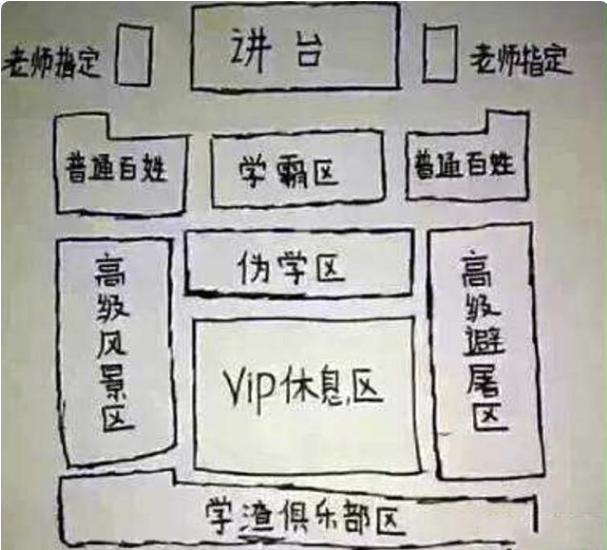 老师指定
讲台
老师指定
普通百姓
学霸区
普通百姓
伪学区
高级风景区
Vip休息区
高级避屠区
学渣俱乐部区